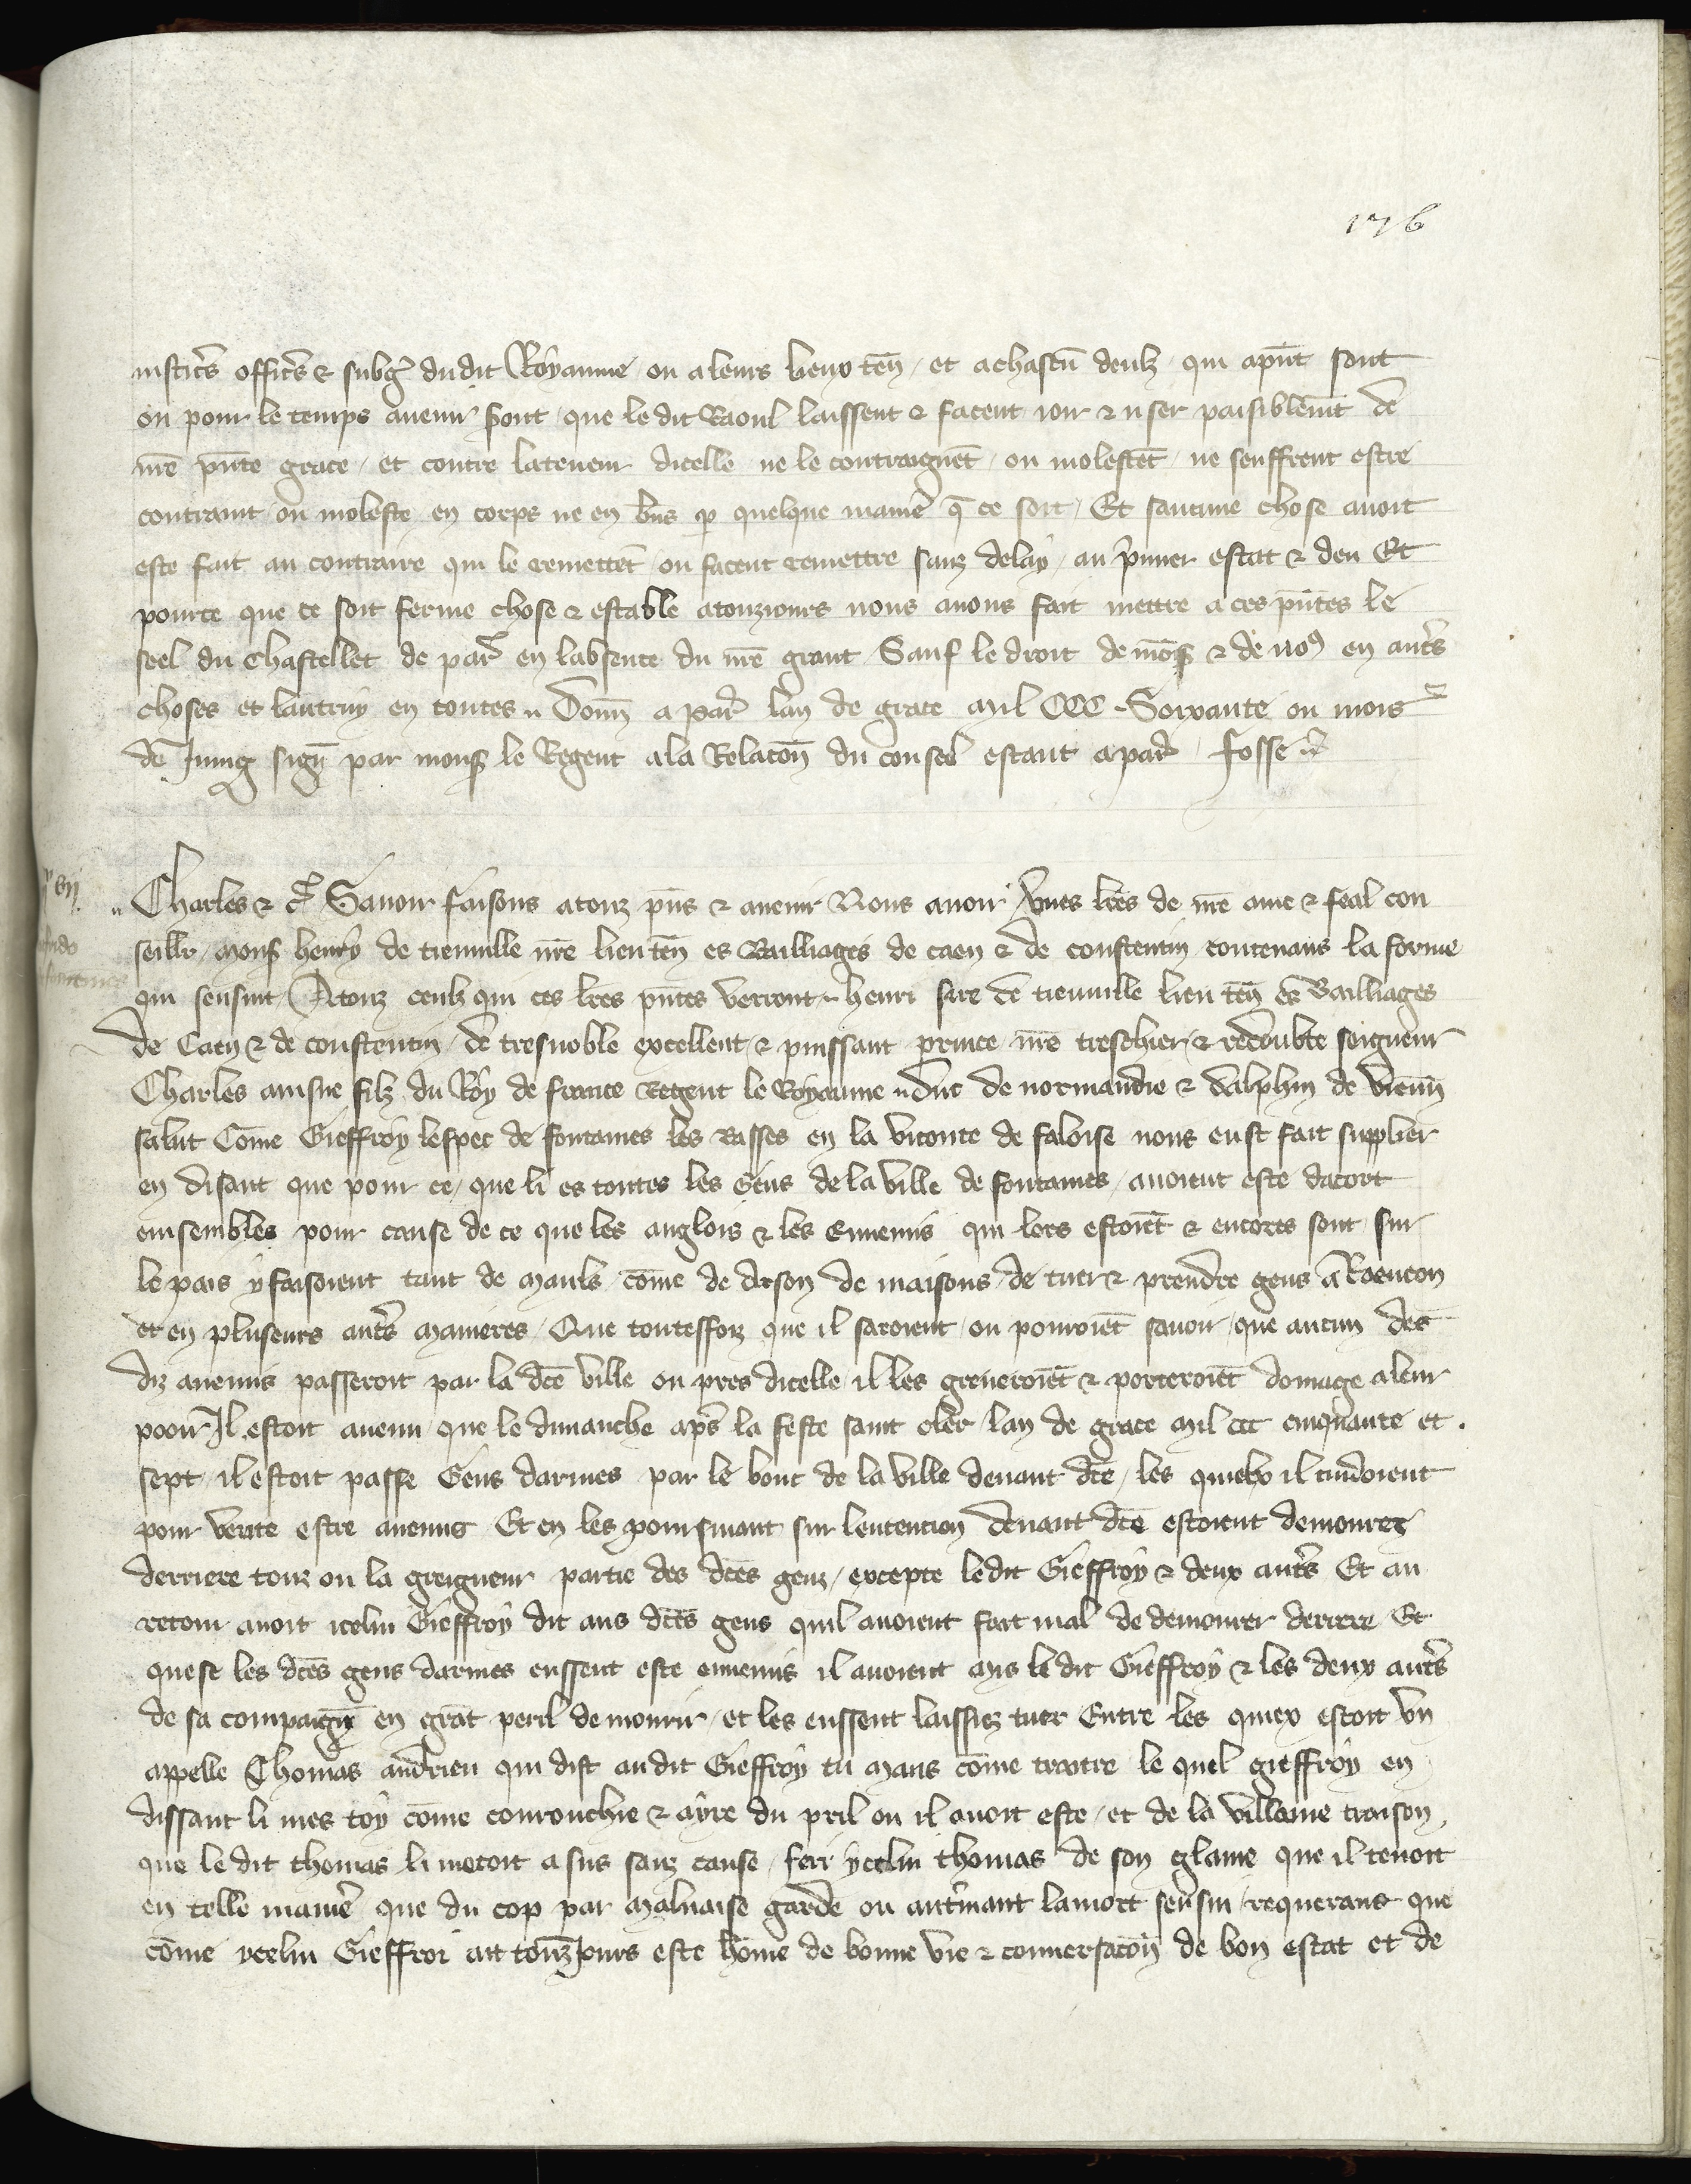 176
iusticẽs officẽs & subgẽ dudit Royaume ou a leurs lieux teñ / et a chascũ deulz qui apñt sont
ou pour le temps auenir ẽont que le dit Raoul laissent & facent ioir & user paisiblemẽt de
nrẽ pñte grace / et contre la teneur dicelle ne le contraignẽt ou molestẽt / ne seuffrent estre
contraint ou moleste en corps ne en bñs ꝑ quelque maniẽ q̃ ce soit / Et saucune chose auoit
este fait au contraire qui le remettẽt ou facent remettre sanz delay / au p̃mier estat & deu Et
pource que ce soit ferme chose & estable a touziours nous auons fait mettre a ces pñtes le
seel du Chastellet de par̃ en labsence du nrẽ grant Sauf le droit de mõs & de noꝰ en autẽs
choses et lautruy en toutes Donñ a par̃ lan de grace Mil CCC Soixante ou mois
de Juing sigñ par mons le Regent a la Relacõn du conseil estant a par̃ / fosse
Charles & c̃ Sauoir faisons a touz pñs & auenir Nous auoir veues lrẽs de nrẽ ame & feal con
seillr / Mons henry de tieuuille nrẽ lieu teñ es Bailliages de caen & de coustentin contenans la forme
qui sensuit A touz ceulz qui ces lrẽs pñtes verront henri sire de tieuuille lieu teñ es Bailliages
de Caen & de coustentin / de tresnoble excellent & puissant prince nrẽ treschier & redoubte seigneur
Charles ainsne filz du Roy de france Regent le Royaume duc de normandie & dalphin de vienñ
salut Cõme Gieffroy lespec de fontaines les Basses en la viconte de faloise nous eust fait supplier
en disant que pour ce / que li es toutes les Gens de la ville de fontaines / auoient este dacort
emsembles pour cause de ce que les anglois & les Ennemis qui lors estoiẽt & encores sont sur
le pais y faisoient tant de Mauls cõme de Arson de maisons de tuer & prendre gens a Raencon
et en pluseurs autẽs Manieres / Que toutesfoiz que il saroient ou pourroiẽt sauoir que aucun des
diz anemis passeroit par la dcẽ ville ou pres dicelle il les greueroiẽt & porteroiẽt domage a leur
pooir Il estoit auenu que le dimanche apẽs la feste saint cler lan de grace Mil ccc cinquante et
sept / il estoit passe Gens darmes par le bout de la ville deuant dcẽ / les quielx il cuidoient
pour verite estre anemis Et en les poursuiant sur lentencion deuant dcẽ estoient demourez
derriere touz ou la greigneur partie des dcẽs genz / excepte ledit Gieffroy & deux autẽs Et au
retour auoit icelui Gieffroy dit aus dcẽs gens quil auoient fait mal de demourer derrere Et
que se les dcẽs gens darmes eussent este ennemis il auoient Mis le dit Gieffroy & les deux autẽs
de sa compaigñ en grãt peril de mourir / et les eussent laissiez tuer Entre les quiex estoit vn
appelle Thomas andrieu qui dist au dit Gieffroy tu Mans cõme traitre le quel gieffroy en
dissant li mes toy cõme courouchie & ayre du pril ou il auoit este / et de la villaine traison
que le dit thomas li metoit a sus sanz cause / feri ycelui thomas de son glaiue que il tenoit
en telle maniẽ que du cop par Maluaise garde ou autrmant la mort sen sui / requerans que
cõme ycelui Gieffroi ait touz iours este hõme de bonne vie & conuersacõn de bon estat et de